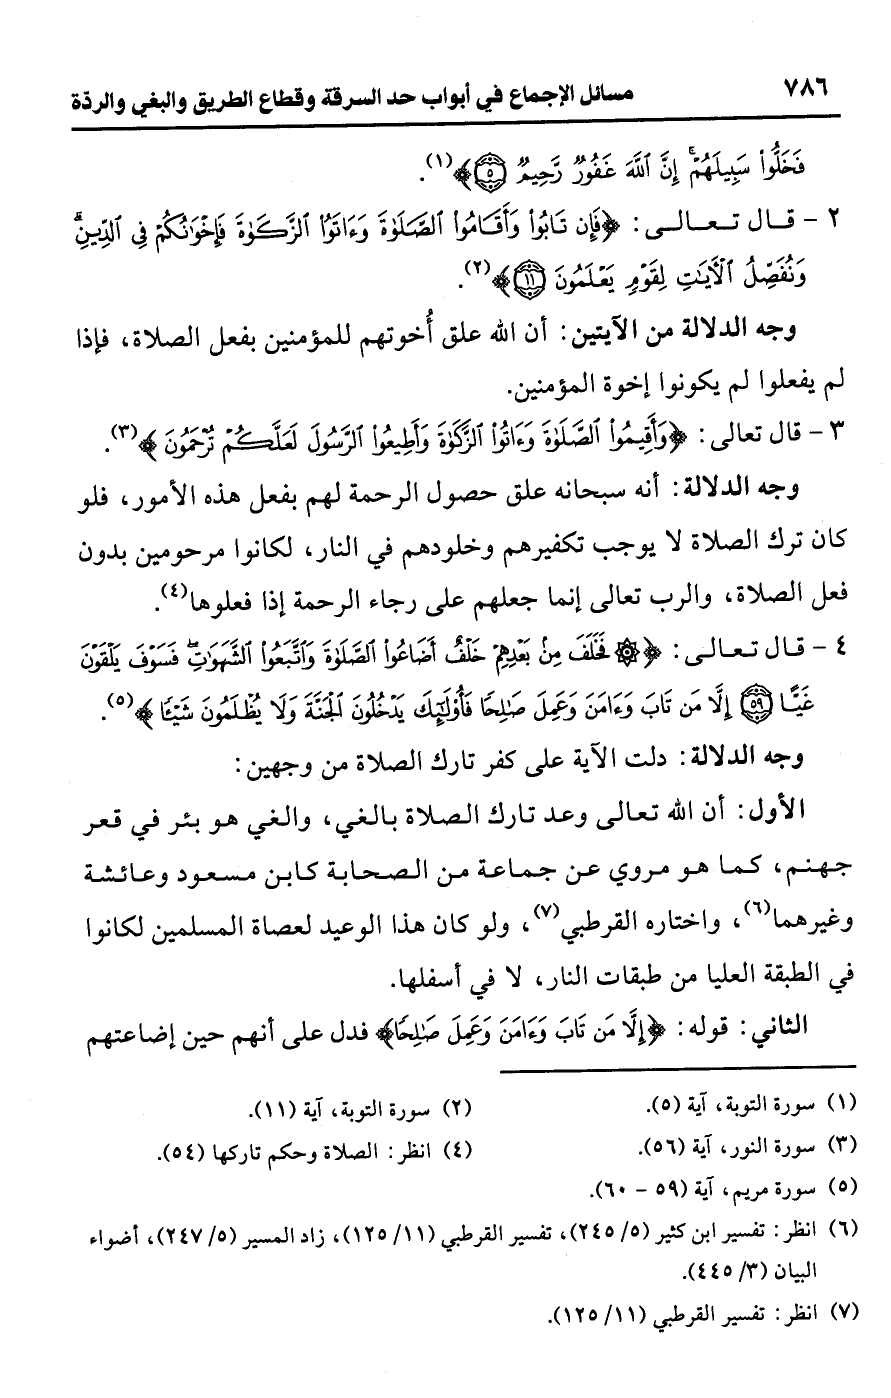 ٧٨٦ مسائل الإجماع في أبواب حد السرقة وقطاع الطريق والبغي والردّة
فَخَلُّوا۟ سَبِيلَهُمْ ۚ إِنَّ ٱللَّهَ غَفُورٌ رَّحِيمٌ ٥﴾(١).
٢ - قال تعالى: ﴿فَإِن تَابُوا۟ وَأَقَامُوا۟ ٱلصَّلَوٰةَ وَءَاتَوُا۟ ٱلزَّكَوٰةَ فَإِخْوَٰنُكُمْ فِى ٱلدِّينِ ۗ
وَنُفَصِّلُ ٱلْأَيَٰتِ لِقَوْمٍ يَعْلَمُونَ ١١﴾(٢).
وجه الدلالة من الآيتين: أن الله علق أُخوتهم للمؤمنين بفعل الصلاة، فإذا
لم يفعلوا لم يكونوا إخوة المؤمنين.
٣ - قال تعالى: ﴿وَأَقِيمُوا۟ ٱلصَّلَوٰةَ وَءَاتُوا۟ ٱلزَّكَوٰةَ وَأَطِيعُوا۟ ٱلرَّسُولَ لَعَلَّكُمْ تُرْحَمُونَ﴾(٣).
وجه الدلالة: أنه سبحانه علق حصول الرحمة لهم بفعل هذه الأمور، فلو
كان ترك الصلاة لا يوجب تكفيرهم وخلودهم في النار، لكانوا مرحومين بدون
فعل الصلاة، والرب تعالى إنما جعلهم على رجاء الرحمة إذا فعلوها(٤).
٤ - قال تعالى: ﴿۞ فَخَلَفَ مِنۢ بَعْدِهِمْ خَلْفٌ أَضَاعُوا۟ ٱلصَّلَوٰةَ وَٱتَّبَعُوا۟ ٱلشَّهَوَٰتِ ۖ فَسَوْفَ يَلْقَوْنَ
غَيًّا ٥٩ إِلَّا مَن تَابَ وَءَامَنَ وَعَمِلَ صَٰلِحًا فَأُو۟لَٰٓئِكَ يَدْخُلُونَ ٱلْجَنَّةَ وَلَا يُظْلَمُونَ شَيْـًٔا﴾(٥).
وجه الدلالة: دلت الآية على كفر تارك الصلاة من وجهين:
الأول: أن الله تعالى وعد تارك الصلاة بالغي، والغي هو بئر في قعر
جهنم، كما هو مروي عن جماعة من الصحابة كابن مسعود وعائشة
وغيرهما(٦)، واختاره القرطبي(٧)، ولو كان هذا الوعيد لعصاة المسلمين لكانوا
في الطبقة العليا من طبقات النار، لا في أسفلها.
الثاني: قوله: ﴿إِلَّا مَن تَابَ وَءَامَنَ وَعَمِلَ صَٰلِحًا﴾ فدل على أنهم حين إضاعتهم
(١) سورة التوبة، آية (٥). (٢) سورة التوبة، آية (١١).
(٣) سورة النور، آية (٥٦). (٤) انظر: الصلاة وحكم تاركها (٥٤).
(٥) سورة مريم، آية (٥٩ - ٦٠).
(٦) انظر: تفسير ابن كثير (٥/ ٢٤٥)، تفسير القرطبي (١١/ ١٢٥)، زاد المسير (٥/ ٢٤٧)، أضواء
البيان (٣/ ٤٤٥).
(٧) انظر: تفسير القرطبي (١١/ ١٢٥).